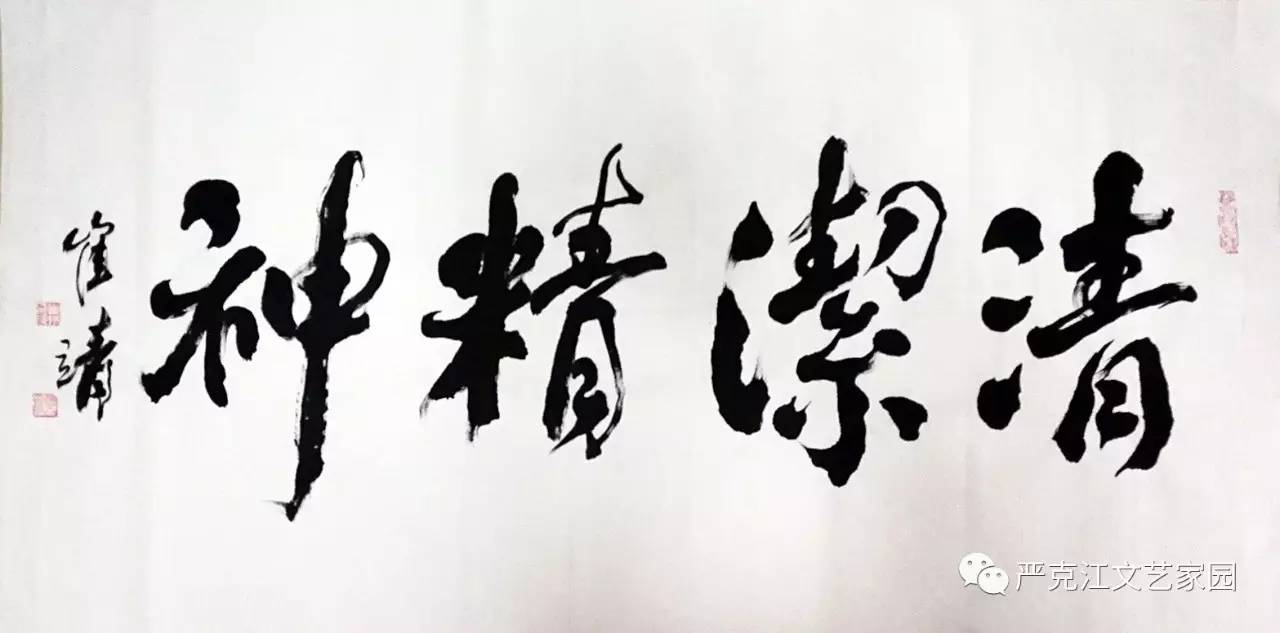 清潔精神
崔靖
严克江文艺家园